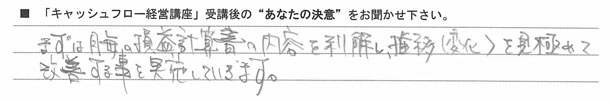 ■ 「キャッシュフロー経営講座」受講後の“あなたの決意”をお聞かせ下さい。
まずは月毎の損益計算書の内容を利解し、推移(変化)を見極めて
改善する事を実施していきます。